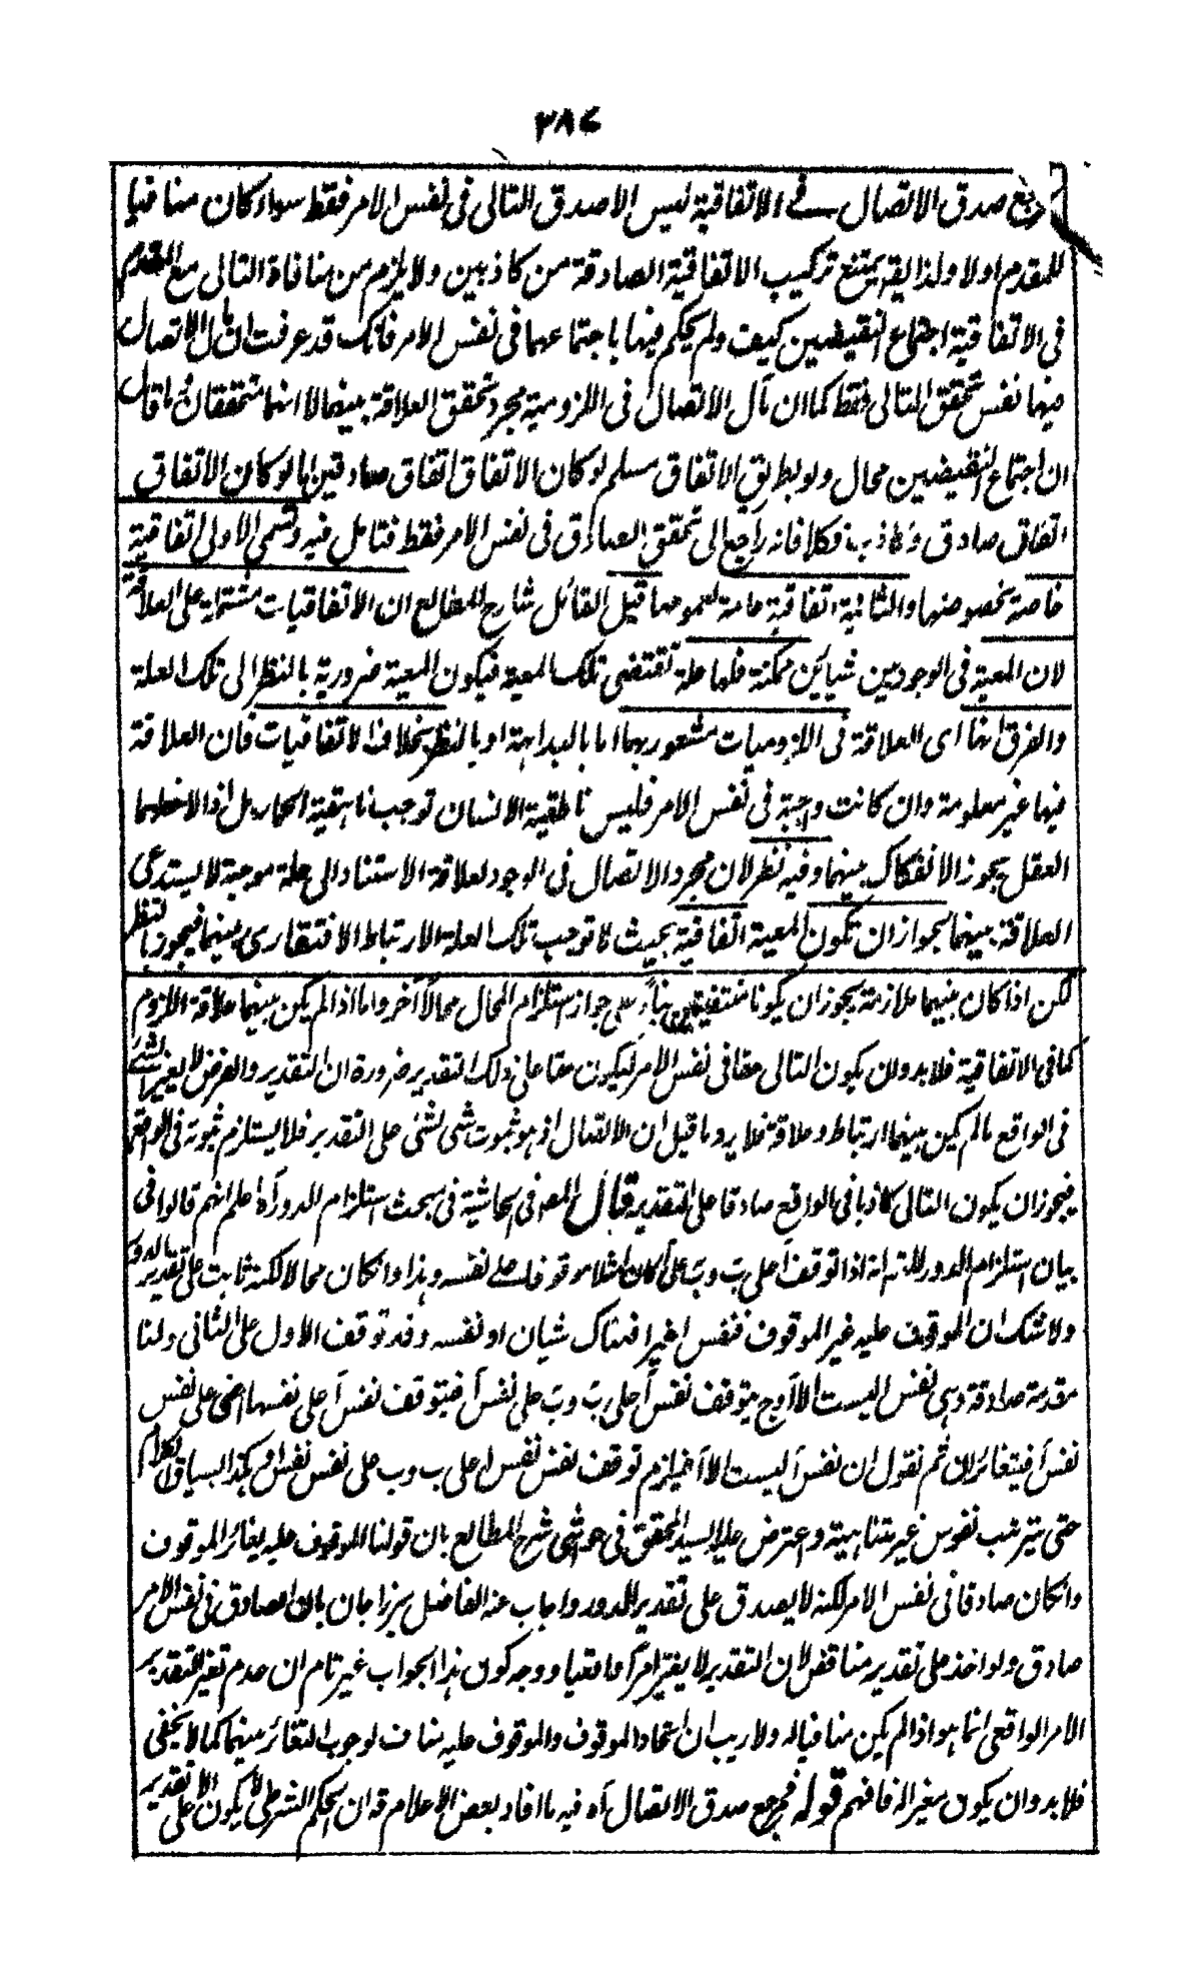 ٣٨٧
فمرجع صدق الاتصال في الاتفاقية ليس الا صدق التالى فى نفس الامر فقط سواء كان منافيا
للمقدم اولا ولذا يقه يمتنع تركيب الاتفاقية الصادقة من كاذبين ولا يلزم من منافاة التالى مع المقدم
فى الاتفاقية اجتماع النقيضين كيف ولم يحكم فيها باجتماعهما فى نفس الامر فانك قد عرفت ان مآل الاتصال
فيها نفس تحقق التالى فقط كما ان مآل الاتصال فى اللزومية مجرد تحقق العلاقة بينهما لا انهما متحققان ما قال
ان اجتماع النقيضين محال ولو بطريق الاتفاق مسلم لو كان الاتفاق اتفاق صادقين اما لو كان الاتفاق
اتفاق صادق وكاذب فكلا فانه راجع الى تحقق الصادق فى نفس الامر فقط فتامل فيه وتسمى الاولى اتفاقية
خاصة بخصوصها والثانية اتفاقية عامة لعمومها قيل القائل شارح المطالع ان الاتفاقيات مشتملة على العلاقة
لان المعية فى الوجودين شيئين ممكنة فلها علة تقتضى تلك المعية فيكون المعية ضرورية بالنظر الى تلك العلة
والفرق انها اى العلاقة فى اللزوميات مشعور بها اما بالبداهة او بالنظر بخلاف الاتفاقيات فان العلاقة
فيها غير معلومة وان كانت واجبة فى نفس الامر فليس ناطقية الانسان توجب ناهقية الحمار بل اذا لاحظهما
العقل يجوز الانفكاك بينهما وفيه نظر لان مجرد الاتصال فى الوجود لعلاقة الاستناد الى علة موجبة لا يستدعى
العلاقة بينهما بجواز ان تكون المعية اتفاقية بحيث لا توجب تلك العلة الارتباط الافتقارى بينهما فيجوز بالنظر
لكن اذا كان بينهما ملازمة يجوز ان يكونا منتفيين بناء على جواز استلزام المحال محالا آخر واما اذا لم يكن بينهما علاقة اللزوم
كما فى الاتفاقية فلا بد وان يكون التالى حقا فى نفس الامر ليكون حقا على ذلك التقدير ضرورة ان التقدير والفرض لا يغير الشئ
فى الواقع مالم يكن بينهما ارتباط وعلاقة فلا يرد ما قيل ان الاتصال اذ هو ثبوت شى لشئ على التقدير فلا يستلزم ثبوته فى الواقع
فيجوز ان يكون التالى كاذبا فى الواقع صادقا على التقدير قال المصنف فى الحاشية فى بحث استلزام الدور آه اعلم انهم قالوا فى
بيان استلزام الدور للتسه انه اذا توقف آ على ب وب على آ كان آ مثلا موقوفا على نفسه وهذا وان كان محالا لكنه ثابت على تقدير الدور
ولا شك ان الموقوف عليه غير الموقوف فنفس آ غير آ فهناك شيئان آ ونفسه وقد توقف الاول على الثانى ولنا
مقدمة صادقة وهى نفس آ ليست الا آ وح يتوقف نفس آ على ب وب على نفس آ فيتوقف نفس آ على نفسها اعنى على نفس
نفس آ فيتغائران ثم نقول ان نفس نفس آ ليست الا آ فيلزم توقف نفس نفس آ على ب وب على نفس نفس آ وهكذا بسياق الكلام
حتى يترتب نفوس غير متناهية واعترض عليه السيد المحقق فى حواشى شرح المطالع بان قولنا الموقوف عليه يغائر الموقوف
وان كان صادقا فى نفس الامر لكنه لا يصدق على تقدير الدور واجاب عنه الفاضل ميرزا جان بان الصادق فى نفس الامر
صادق ولو اخذ على تقدير مناقض لان التقدير لا يغير امرا واقعيا ووجه كون هذا الجواب غير تام ان عدم تغير التقدير
الامر الواقعى انما هو اذا لم يكن منافيا له ولا ريب ان اتحاد الموقوف والموقوف عليه مناف لوجوب التغائر بينهما كما لا يخفى
فلا بد وان يكون مغيرا له فافهم قوله فمرجع صدق الاتصال آه فيه ما افاد بعض الاعلام قه ان الحكم الشرطى لا يكون الا على تقدير